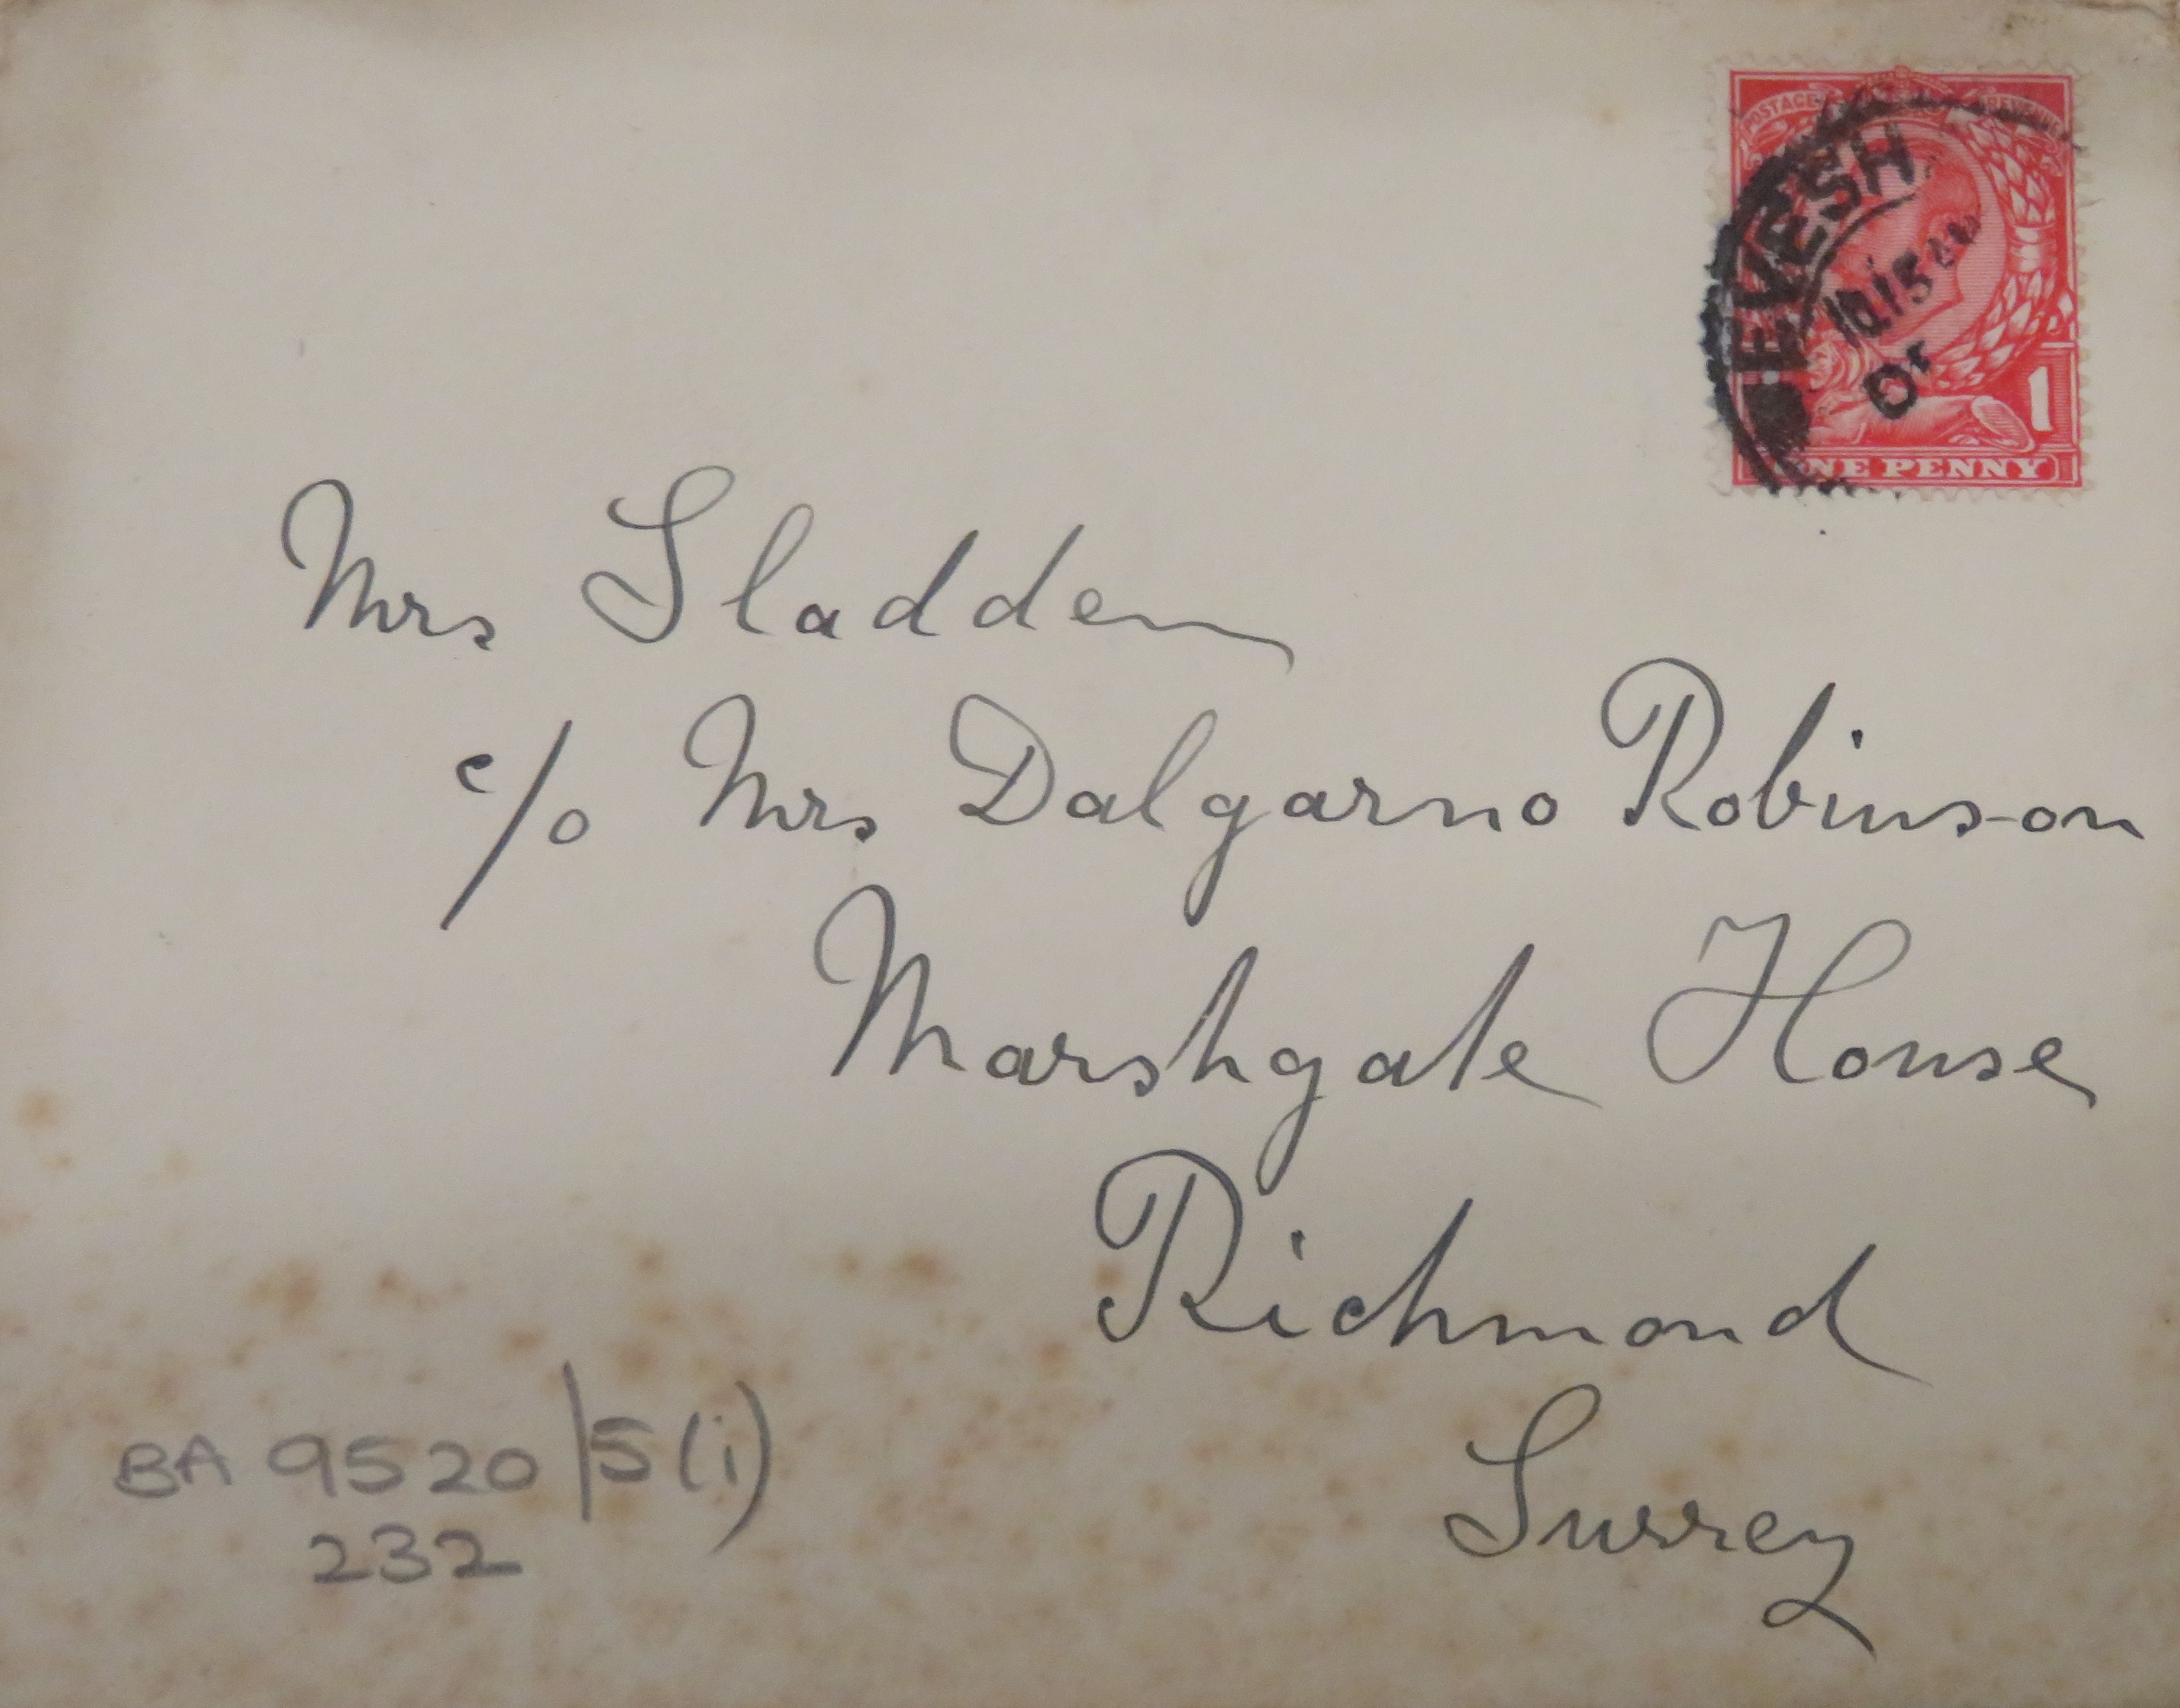 POSTAGE REVENUE
EVESH
10.15 AM
1
ONE PENNY
Mrs Sladden
c/o Mrs Dalgarno Robinson
Marshgate House
Richmond
Surrey
BA 9520/5(i)
232